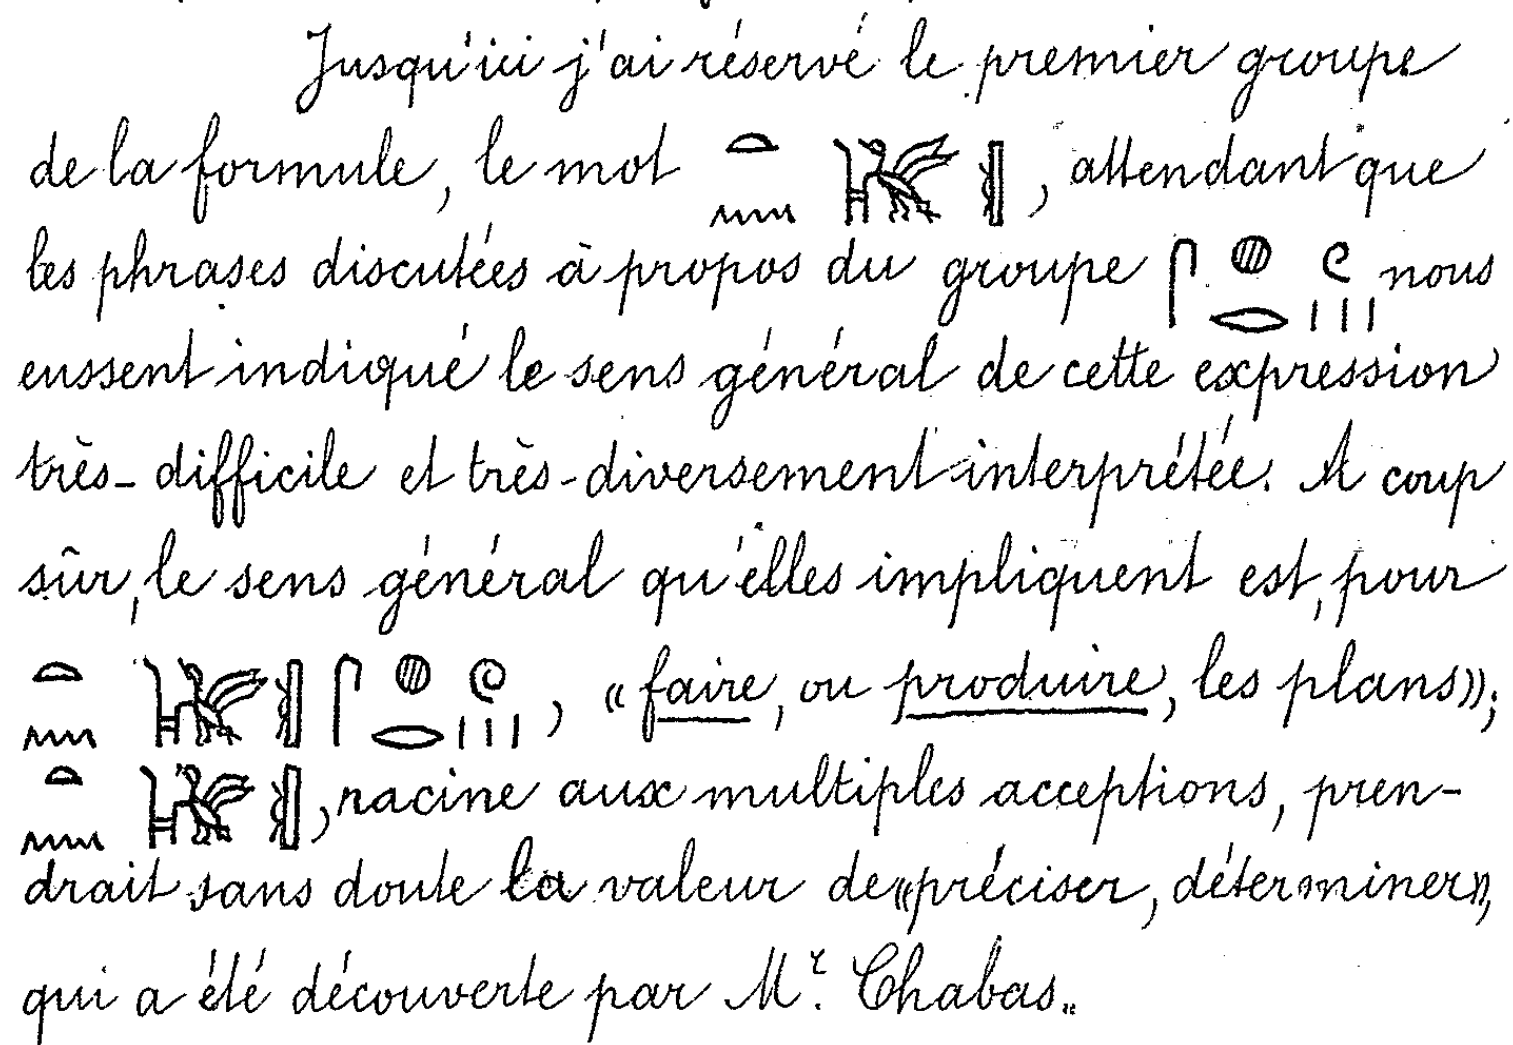 Jusqu'ici j'ai réservé le premier groupe
de la formule, le mot , attendant que
les phrases discutées à propos du groupe nous
eussent indiqué le sens général de cette expression
très-difficile et très-diversement interprétée. A coup
sûr, le sens général qu'elles impliquent est, pour
, « faire, ou produire, les plans »;
, racine aux multiples acceptions, pren-
drait sans doute la valeur de « préciser, déterminer »,
qui a été découverte par Mr. Chabas. "